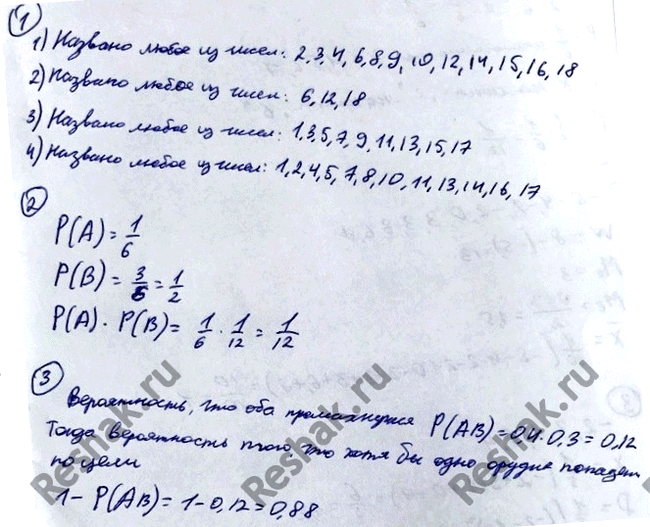 1
1) Названо любое из чисел: 2,3,4,6,8,9,10,12,14,15,16,18
2) Названо любое из чисел: 6,12,18
3) Названо любое из чисел: 1,3,5,7,9,11,13,15,17
4) Названо любое из чисел: 1,2,4,5,7,8,10,11,13,14,16,17
2
P(A) = 1/6
P(B) = 3/6 = 1/2
P(A) · P(B) = 1/6 · 1/12 = 1/12
3
Вероятность, что оба промахнутся P(AB) = 0,4 · 0,3 = 0,12
Тогда вероятность того, что хотя бы одно орудие попадет
по цели
1 - P(AB) = 1 - 0,12 = 0,88
Reshak.ru
Reshak.ru
Reshak.ru